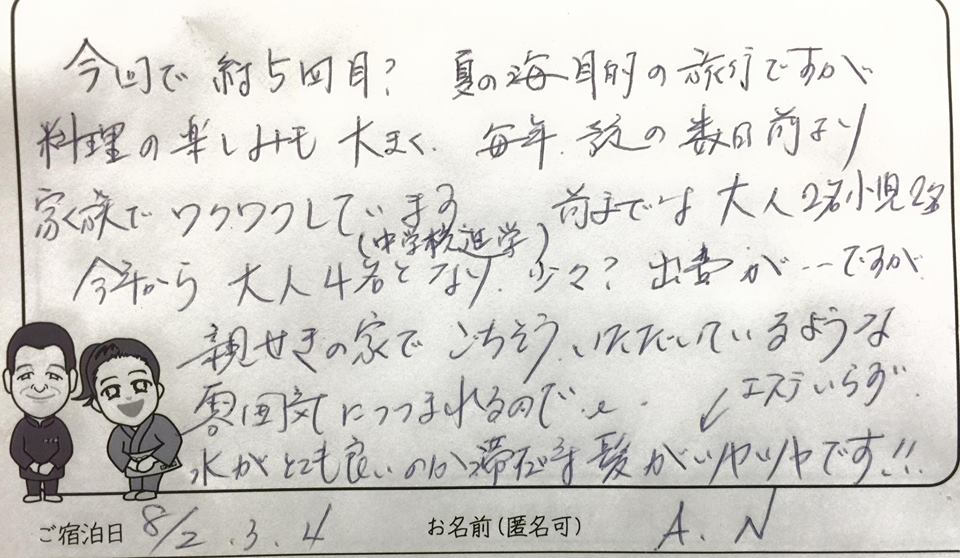 今回で約5回目? 夏の海目的の旅行ですが
料理の楽しみも大きく、毎年、旅の数日前より
家族でワクワクしています 前年までは大人2名小児2名
(中学校進学)
今年から大人4名となり、少々?出費が…ですが
親せきの家でごちそういただいているような
雰囲気につつまれるので
エステいらず
水がとても良いのか滞在時髪がツヤツヤです!!
ご宿泊日 8/2.3.4 お名前(匿名可) A.N